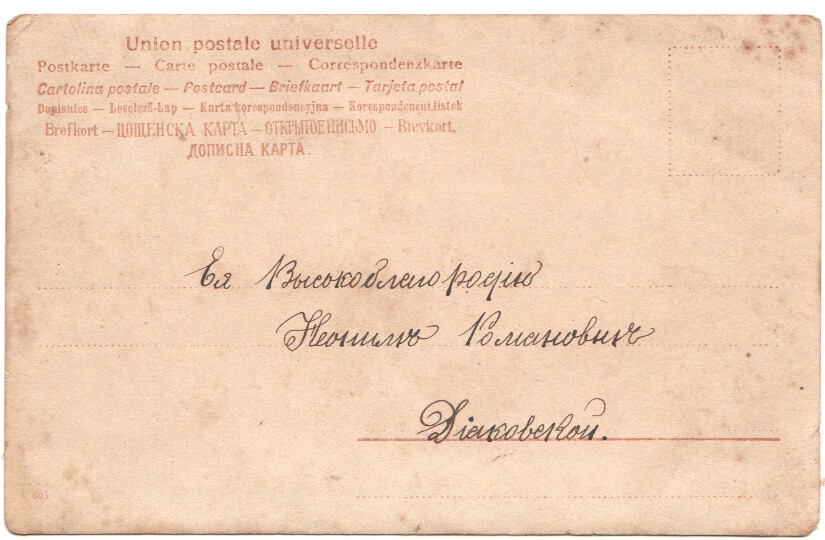 Union postale universelle
Postkarte — Carte postale — Correspondenzkarte
Cartolina postale — Postcard — Briefkaart — Tarjeta postal
Dopisnice — Levelező-Lap — Karta korespondencyjna — Korespondencni listek
Brefkort — ЦОЩЕНСКА КАРТА — ОТКРЫТОЕ ПИСЬМО — Brevkort.
ДОПИСНА КАРТА.
Ея Высокоблагородію
Неонилѣ Романовнѣ
Діаковской.
605